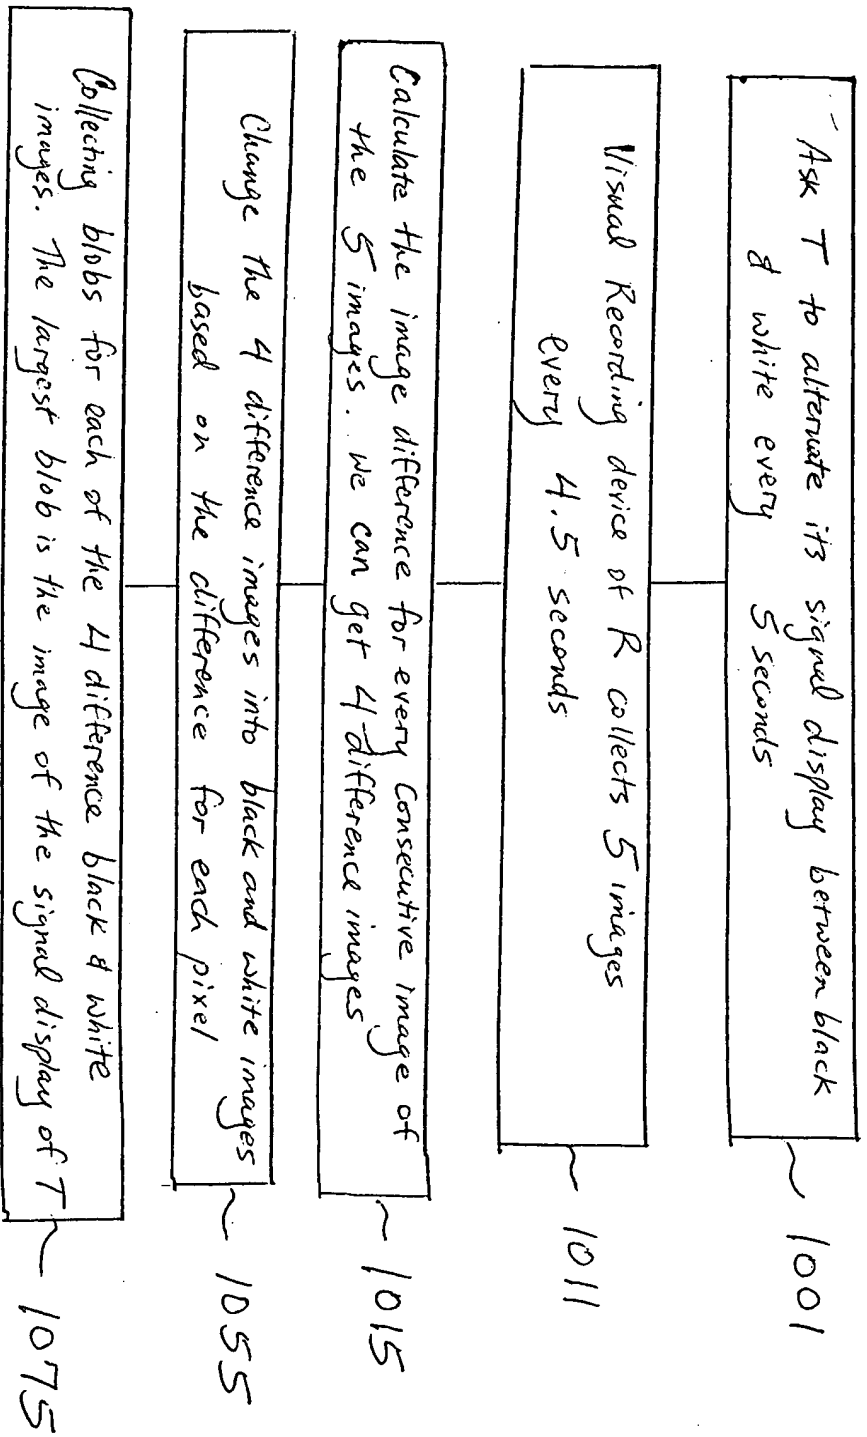 Ask T to alternate its signal display between black
& white every 5 seconds
1001
Visual Recording device of R collects 5 images
every 4.5 seconds
1011
Calculate the image difference for every consecutive image of
the 5 images. We can get 4 difference images
1015
Change the 4 difference images into black and white images
based on the difference for each pixel
1055
Collecting blobs for each of the 4 difference black & white
images. The largest blob is the image of the signal display of T
1075